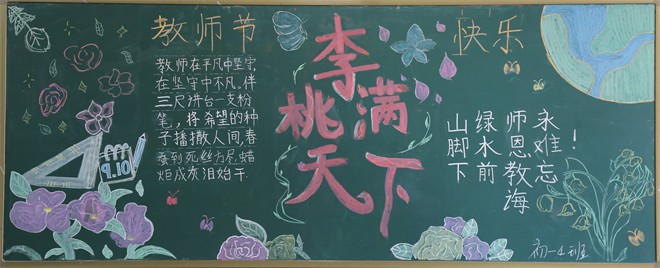 教师节
快乐
教师在平凡中坚守,
在坚守中不凡。伴
三尺讲台一支粉
笔,将希望的种
子播撒人间,春
蚕到死丝方尽,蜡
炬成灰泪始干.
9.10
李
桃满
天下
山脚下
绿水前
师恩教海
永难忘!
初一4班